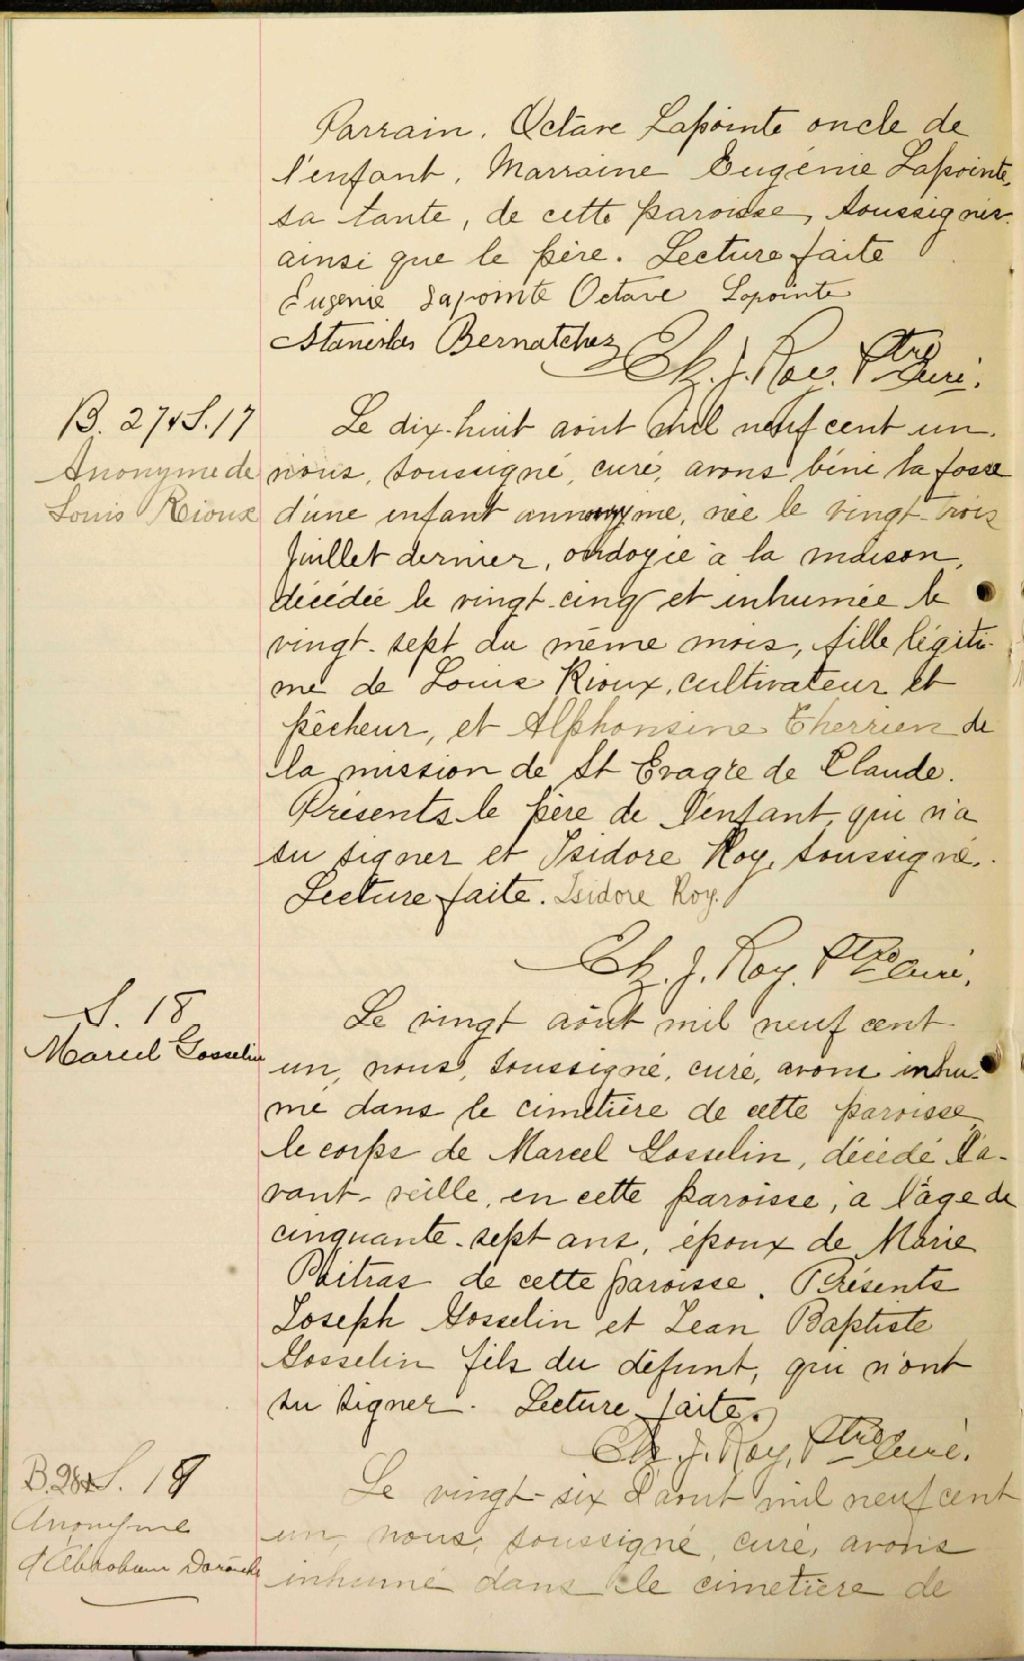 Parrain, Octave Lapointe oncle de
l'enfant, Marraine Eugénie Lapointe,
sa tante, de cette paroisse, soussignés
ainsi que le père. Lecture faite
Eugenie Lapointe Octave Lapointe
Stanislas Bernatchez
Ch. J. Roy, Ptre Curé.
B. 27 & S. 17
Anonyme de
Louis Rioux
Le dix-huit août mil neuf cent un,
nous, soussigné, curé, avons béni la fosse
d'une enfant annonyme, née le vingt-trois
Juillet dernier, ondoyée à la maison,
décédée le vingt-cinq et inhumée le
vingt-sept du même mois, fille légiti-
me de Louis Rioux, cultivateur et
pêcheur, et Alphonsine Therrien de
la mission de St Evagre de Claude.
Présents le père de l'enfant, qui n'a
su signer et Isidore Roy, soussigné.
Lecture faite. Isidore Roy.
Ch. J. Roy, Ptre Curé.
S. 18
Marcel Gosselin
Le vingt août mil neuf cent-
un, nous, soussigné, curé, avons inhu-
mé dans le cimetière de cette paroisse
le corps de Marcel Gosselin, décédé l'a-
vant-veille, en cette paroisse, à l'âge de
cinquante-sept ans, époux de Marie
Poitras de cette paroisse. Présents
Joseph Gosselin et Jean Baptiste
Gosselin fils du défunt, qui n'ont
su signer. Lecture faite.
Ch. J. Roy, Ptre Curé.
B. 28 & S. 19
Anonyme
d'Abraham
Le vingt-six d'aout mil neuf cent
un, nous, soussigné, curé, avons
inhumé dans le cimetière de